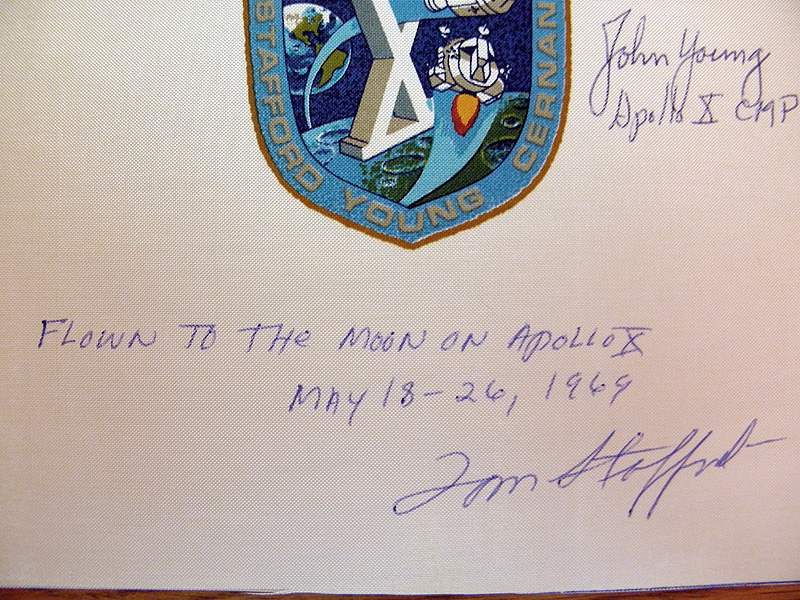 STAFFORD YOUNG CERNAN
John Young
Apollo X CMP
FLOWN TO THE MOON ON APOLLO X
MAY 18-26, 1969
Tom Stafford